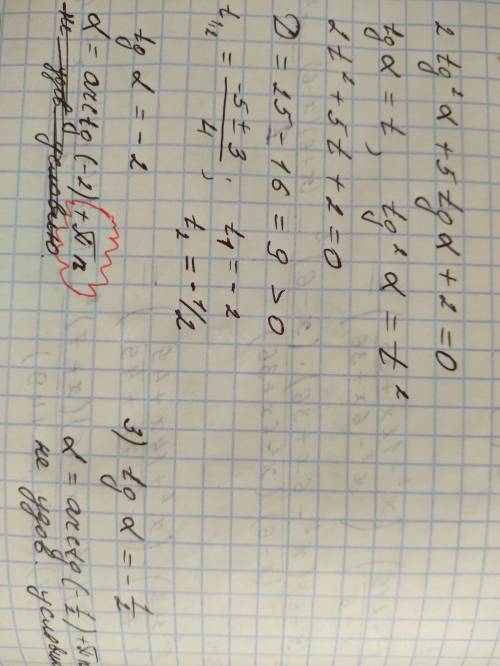 2 tg² α + 5 tg α + 2 = 0
tg α = t, tg² α = t²
2t² + 5t + 2 = 0
D = 25 - 16 = 9 > 0
t₁/₂ = (-5 ± 3)/4; t₁ = -2
t₂ = -1/2
tg α = -2
α = arctg (-2) + πn
не удов. условию
3) tg α = -1/2
α = arctg (-1/2) + πn
не удов. услови